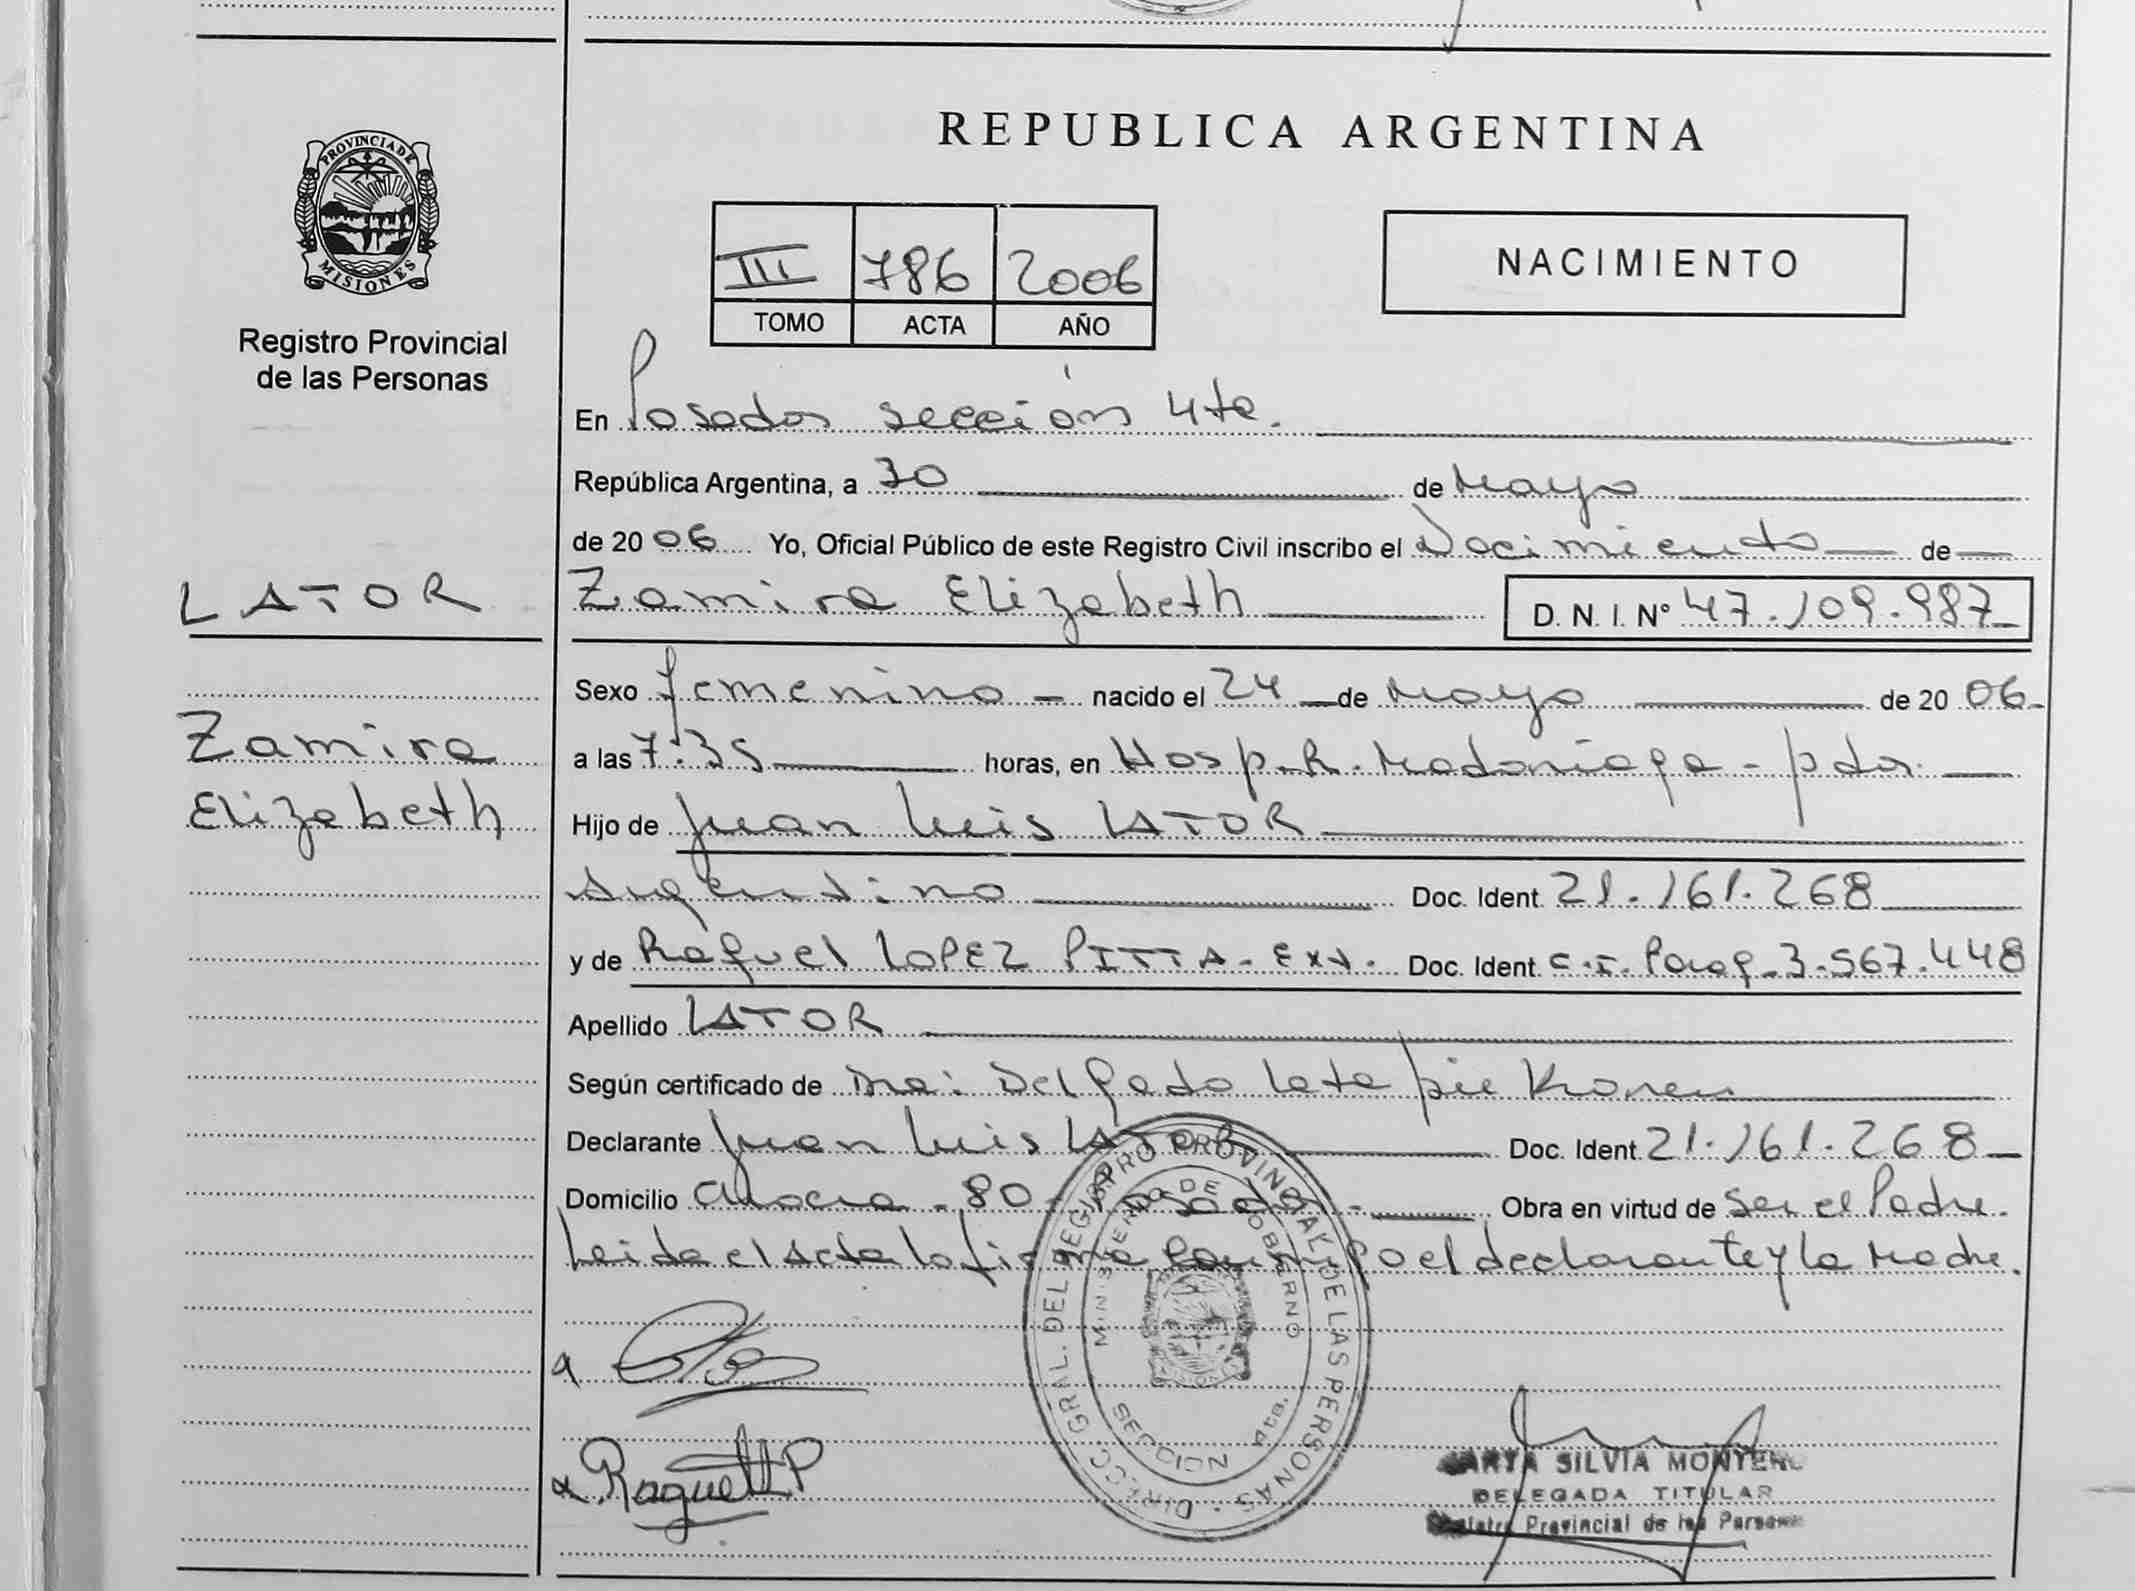 REPUBLICA ARGENTINA
PROVINCIA DE
MISIONES
Registro Provincial
de las Personas
III 786 2006
TOMO ACTA AÑO
NACIMIENTO
En Posadas sección 4ta.
República Argentina, a 30 de Mayo
de 2006 Yo, Oficial Público de este Registro Civil inscribo el Nacimiento de
LATOR
Zamira Elizabeth D. N. I. Nº 47.109.987
Sexo femenino nacido el 24 de Mayo de 2006
Zamira
Elizabeth
a las 7:35 horas, en Hosp. R. Madariaga - pdas.
Hijo de Juan Luis LATOR
Argentino Doc. Ident. 21.161.268
y de Raquel LOPEZ PITTA - Ext. Doc. Ident. C.I. Parag. 3.567.448
Apellido LATOR
Según certificado de Dra: Delgado Karen
Declarante Juan Luis LATOR Doc. Ident. 21.161.268
Domicilio - 80 - Posadas - Obra en virtud de Ser el Padre.
Leida el Acta la firma Conmigo el declarante y la Madre.
DIRECC. GRAL. DEL REGISTRO PROVINCIAL DE LAS PERSONAS
MINISTERIO DE GOBIERNO
SECCION 4ta.
Raquel P
MARTA SILVIA MONTERO
DELEGADA TITULAR
Registro Provincial de las Personas